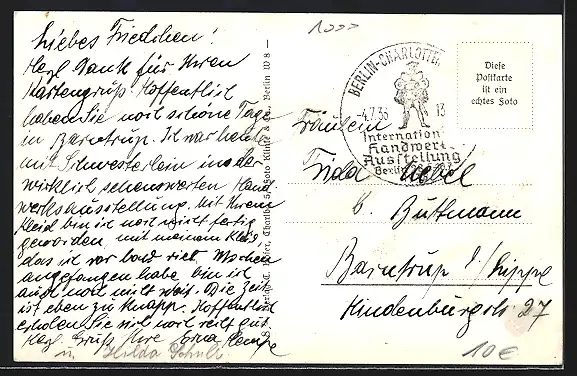 Liebes Friedchen!
Herzl. Dank für Ihren
Kartengruß. Hoffentlich
haben Sie noch schöne Tage
in Barntrup. Ich war heute
mit Schwesterlein in der
wirklich sehenswerten Hand
werksausstellung. Mit Ihrem
Kleid bin ich noch nicht fertig
geworden, mit meinem Kleid,
das ich vor bald vier Wochen
angefangen habe bin ich
auch noch nicht weit. Die Zeit
ist eben zu knapp. Hoffentlich
erholen Sie sich noch recht gut.
Herzl. Gruß Ihre Erna Hempe
u. Hilda Schulz
Berlin W 8 —
BERLIN-CHARLOTTEN
-4.7.38 13
International
Handwerk
Ausstellung
Berlin
Diese
Postkarte
ist ein
echtes Foto
Fräulein
Frida
b. Büttmann
Barntrup i/Lippe
Hindenburgstr. 27
10€